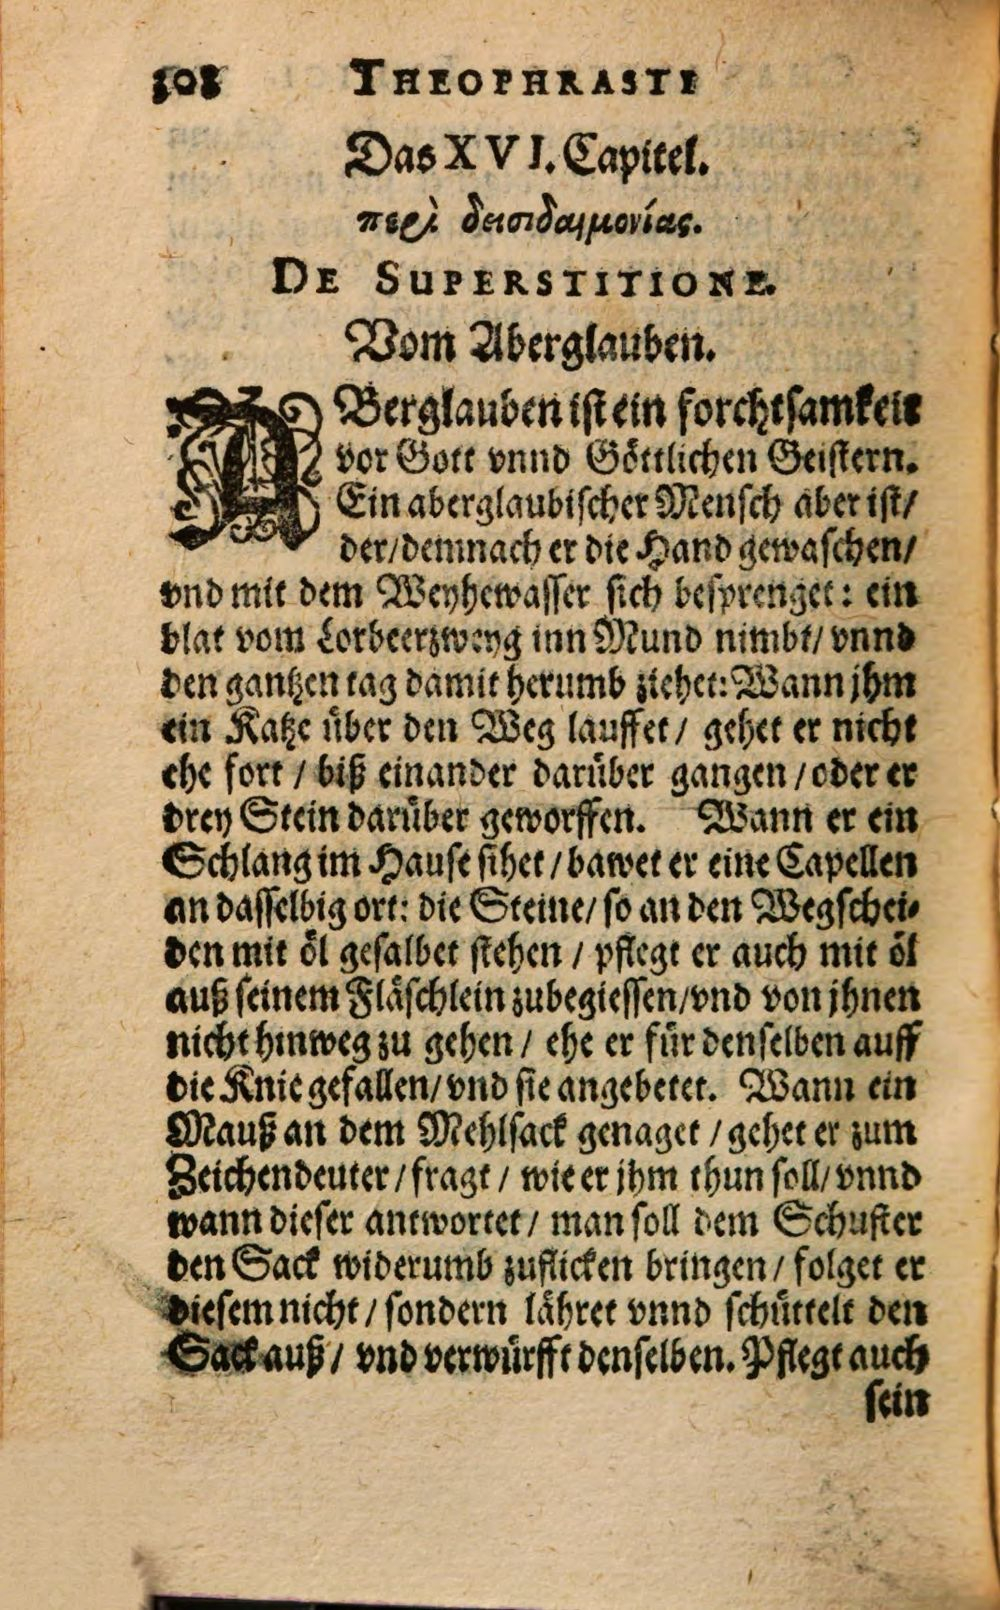 308 THEOPHRASTI
Das XVI. Capitel.
περὶ δεισιδαιμονίας.
DE SUPERSTITIONE.
Vom Aberglauben.
ABerglauben ist ein forchtsamkeit
vor Gott vnnd Göttlichen Geistern.
Ein aberglaubischer Mensch aber ist/
der/demnach er die Hand gewaschen/
vnd mit dem Weyhewasser sich besprenget: ein
blat vom Lorbeerzweyg inn Mund nimbt/ vnnd
den gantzen tag damit herumb ziehet: Wann jhm
ein Katze über den Weg lauffet / gehet er nicht
ehe fort / biß einander darüber gangen / oder er
drey Stein darüber geworffen. Wann er ein
Schlang im Hause sihet / bawet er eine Capellen
an dasselbig ort: die Steine/ so an den Wegschei-
den mit öl gesalbet stehen / pflegt er auch mit öl
auß seinem Fläschlein zubegiessen/vnd von jhnen
nicht hinweg zu gehen / ehe er für denselben auff
die Knie gefallen/ vnd sie angebetet. Wann ein
Mauß an dem Mehlsack genaget / gehet er zum
Zeichendeuter / fragt / wie er jhm thun soll/ vnnd
wann dieser antwortet / man soll dem Schuster
den Sack widerumb zuflicken bringen / folget er
diesem nicht / sondern lähret vnnd schüttelt den
Sack auß / vnd verwürfft denselben. Pflegt auch
sein